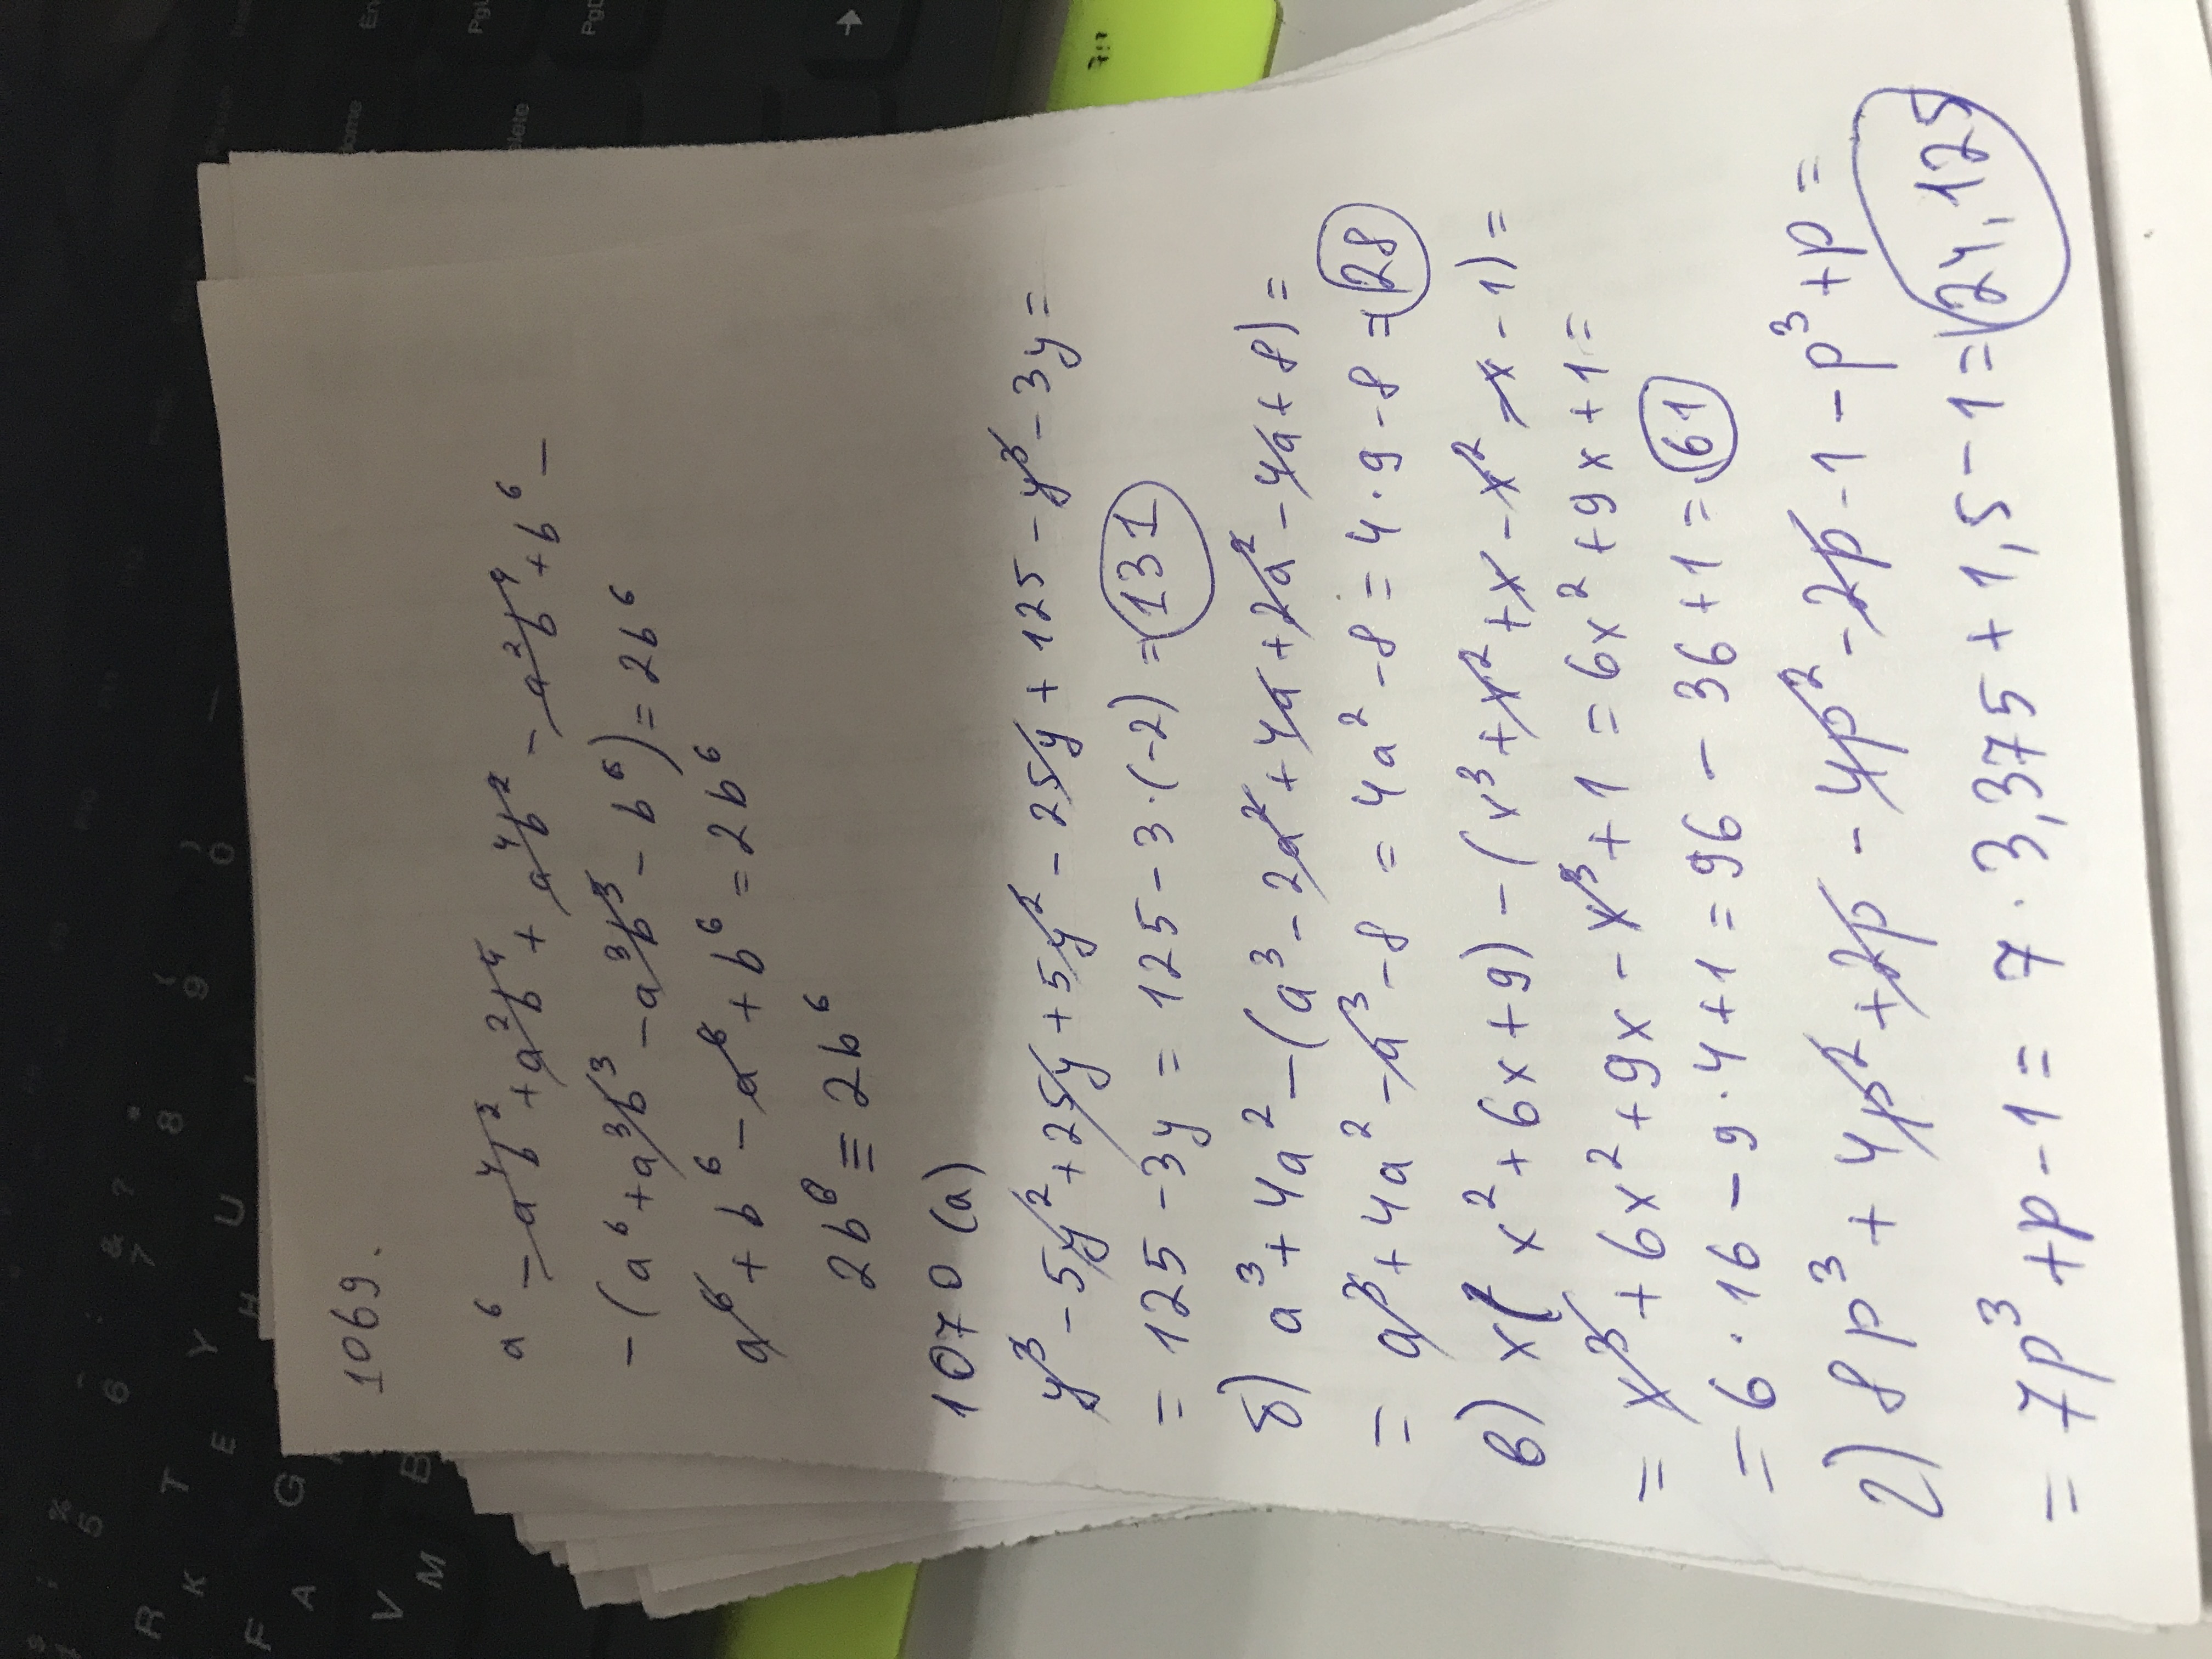 1069.
a⁶ - a⁴b² + a²b⁴ + a⁴b² - a²b⁴ + b⁶ -
- (a⁶ + a³b³ - a³b³ - b⁶) = 2b⁶
a⁶ + b⁶ - a⁶ + b⁶ = 2b⁶
2b⁶ ≡ 2b⁶
1070 (a)
y³ - 5y² + 25y + 5y² - 25y + 125 - y³ - 3y =
= 125 - 3y = 125 - 3·(-2) = 131
б) a³ + 4a² - (a³ - 2a² + 4a + 2a² - 4a + 8) =
= a³ + 4a² - a³ - 8 = 4a² - 8 = 4·9 - 8 = 28
в) x(x² + 6x + 9) - (x³ + x² + x - x² - x - 1) =
= x³ + 6x² + 9x - x³ + 1 = 6x² + 9x + 1 =
= 6·16 - 9·4 + 1 = 96 - 36 + 1 = 61
г) 8p³ + 4p² + 2p - 4p² - 2p - 1 - p³ + p =
= 7p³ + p - 1 = 7·3,375 + 1,5 - 1 = 24,125
R T Y U
F G H
V B M
K E A
5 6 7 8 9 0
% & ? * ( )
Home
Delete
PgU
PgD
En